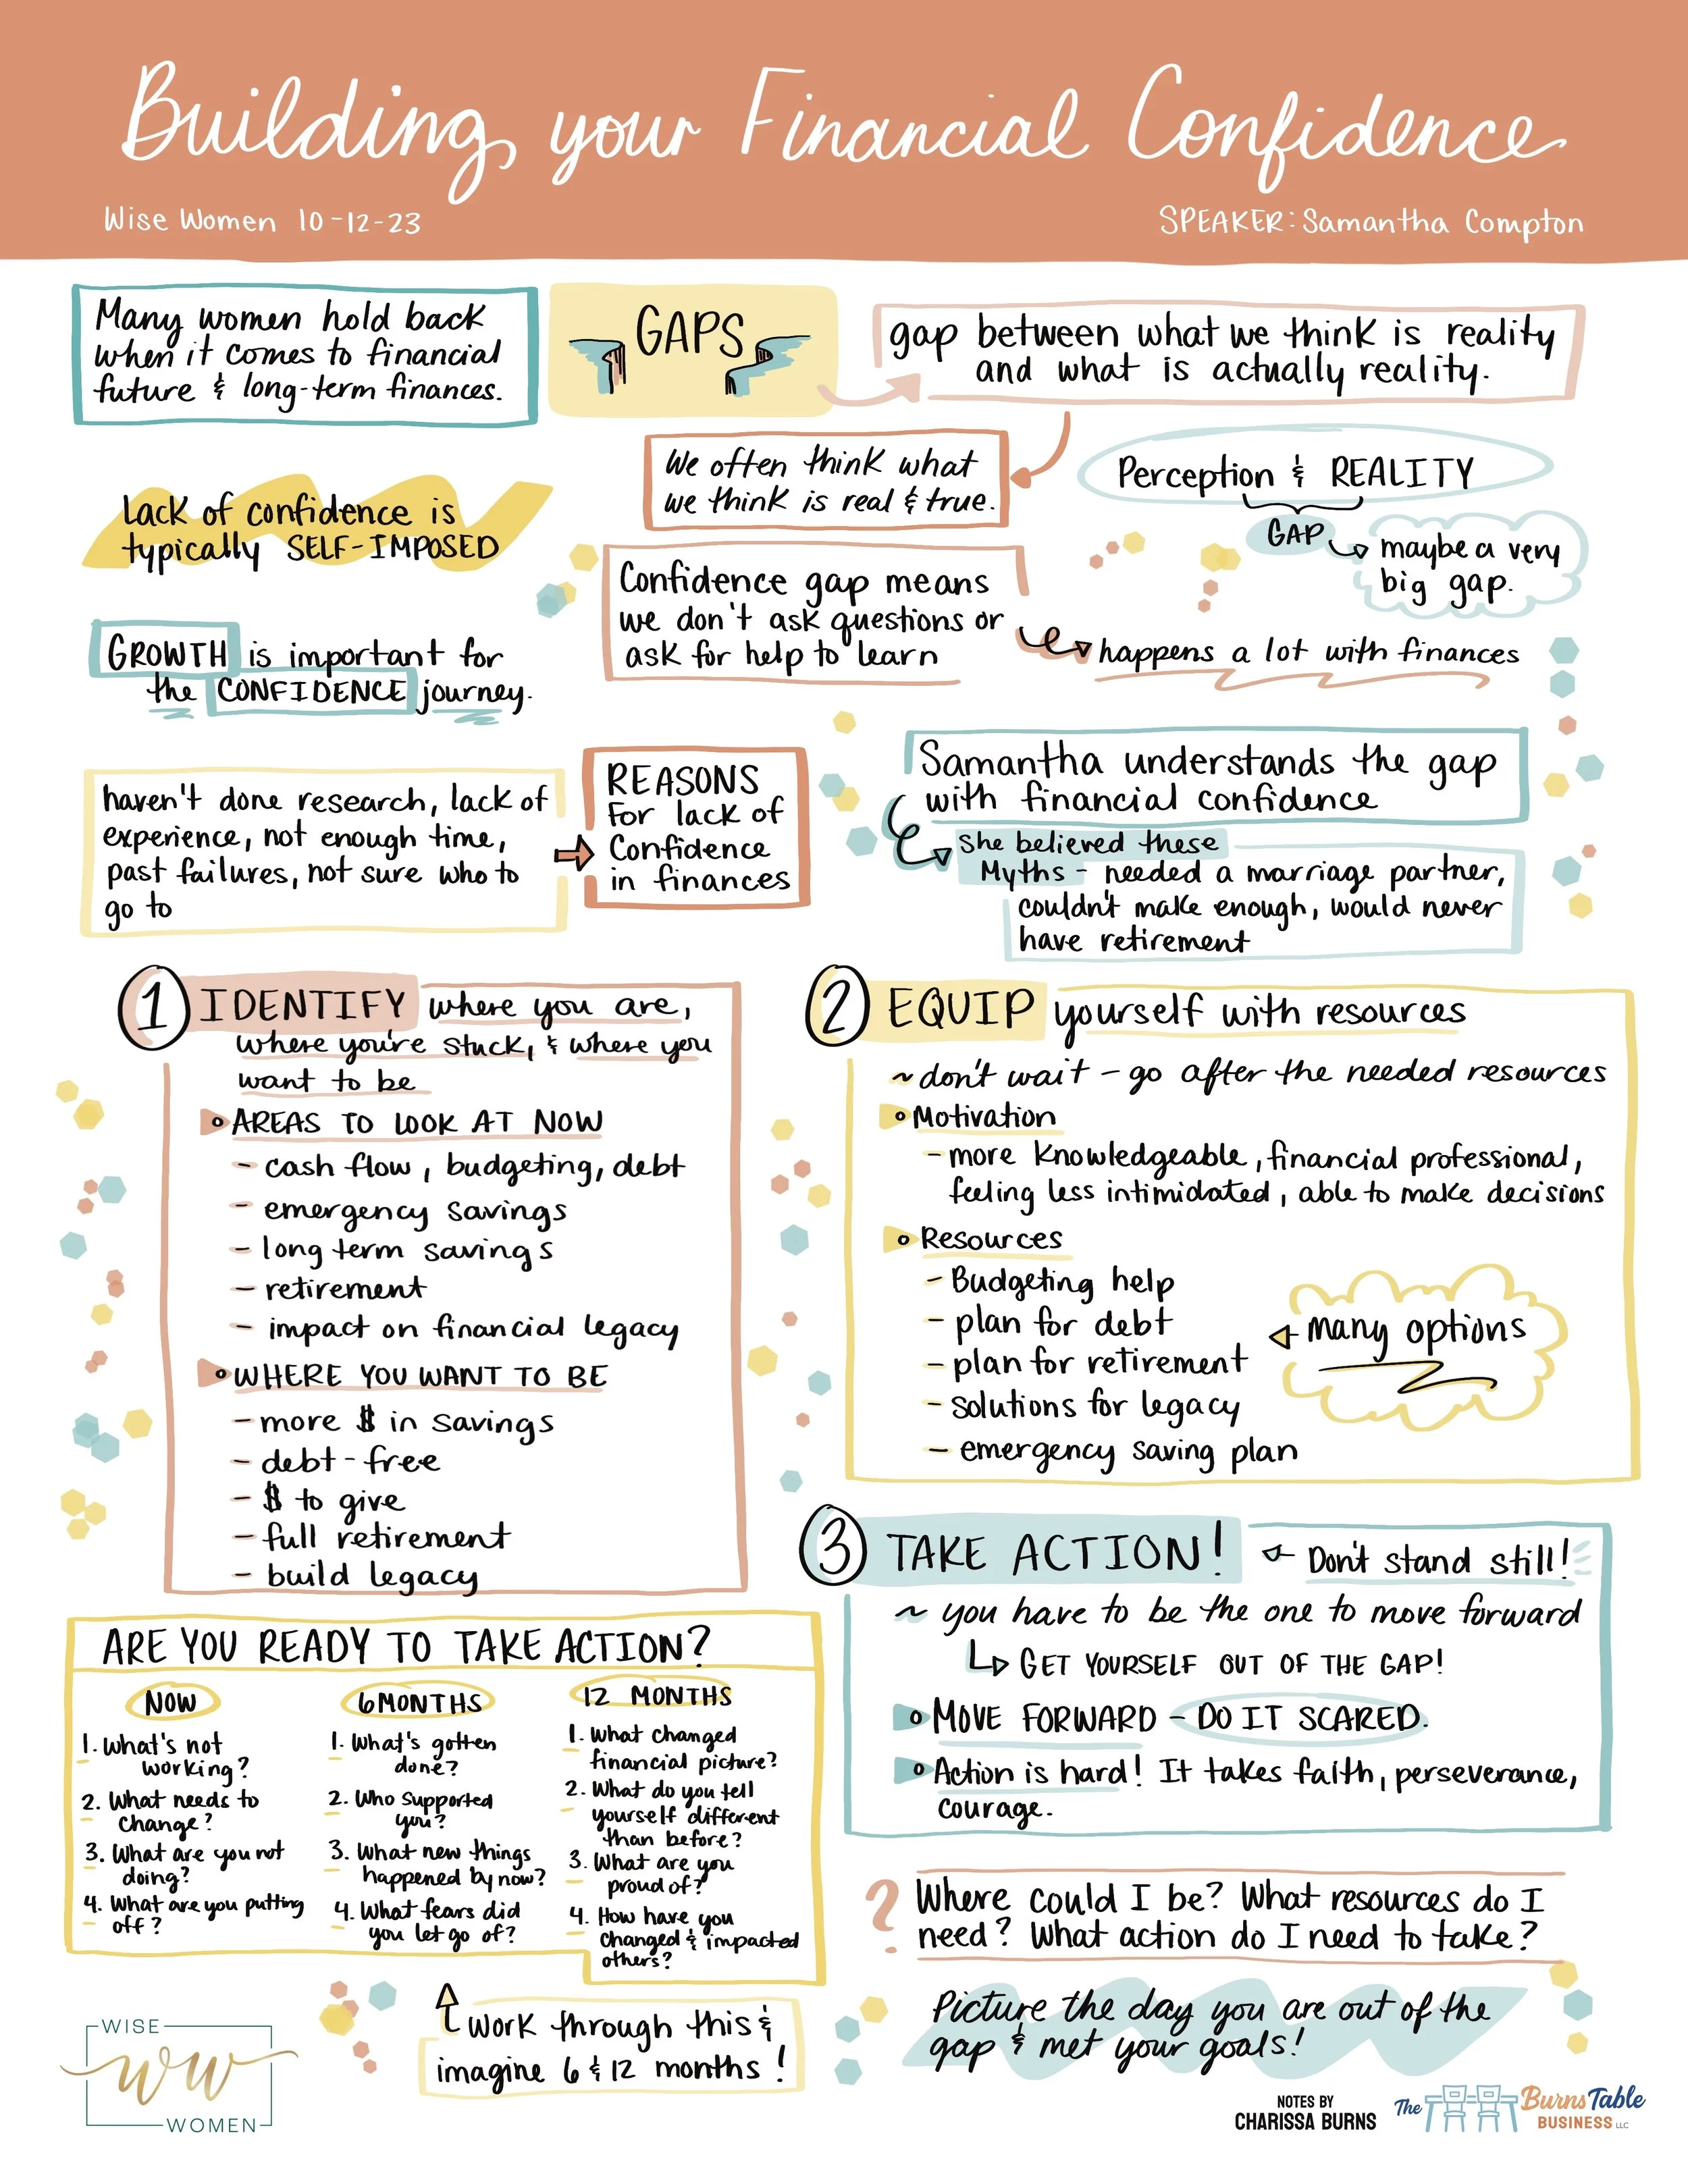 Building your Financial Confidence
Wise Women 10-12-23
SPEAKER: Samantha Compton
Many women hold back
when it comes to financial
future & long-term finances.
GAPS
gap between what we think is reality
and what is actually reality.
We often think what
we think is real & true.
Perception & REALITY
GAP
maybe a very
big gap.
Lack of confidence is
typically SELF-IMPOSED
Confidence gap means
we don't ask questions or
ask for help to learn
happens a lot with finances
GROWTH is important for
the CONFIDENCE journey.
haven't done research, lack of
experience, not enough time,
past failures, not sure who to
go to
REASONS
For lack of
Confidence
in finances
Samantha understands the gap
with financial confidence
She believed these
Myths - needed a marriage partner,
couldn't make enough, would never
have retirement
1 IDENTIFY where you are,
where you're stuck, & where you
want to be
AREAS TO LOOK AT NOW
- cash flow, budgeting, debt
- emergency savings
- long term savings
- retirement
- impact on financial legacy
WHERE YOU WANT TO BE
- more $ in savings
- debt-free
- $ to give
- full retirement
- build legacy
2 EQUIP yourself with resources
~ don't wait - go after the needed resources
Motivation
- more knowledgeable, financial professional,
feeling less intimidated, able to make decisions
Resources
- Budgeting help
- plan for debt
- plan for retirement
- solutions for legacy
- emergency saving plan
many options
3 TAKE ACTION!
Don't stand still!
~ you have to be the one to move forward
GET YOURSELF OUT OF THE GAP!
MOVE FORWARD - DO IT SCARED.
Action is hard! It takes faith, perseverance,
courage.
ARE YOU READY TO TAKE ACTION?
NOW
1. What's not
working?
2. What needs to
change?
3. What are you not
doing?
4. What are you putting
off?
6 MONTHS
1. What's gotten
done?
2. Who supported
you?
3. What new things
happened by now?
4. What fears did
you let go of?
12 MONTHS
1. What changed
financial picture?
2. What do you tell
yourself different
than before?
3. What are you
proud of?
4. How have you
changed & impacted
others?
work through this &
imagine 6 & 12 months!
? Where could I be? What resources do I
need? What action do I need to take?
Picture the day you are out of the
gap & met your goals!
WISE
WW
WOMEN
NOTES BY
CHARISSA BURNS
The Burns Table
BUSINESS LLC